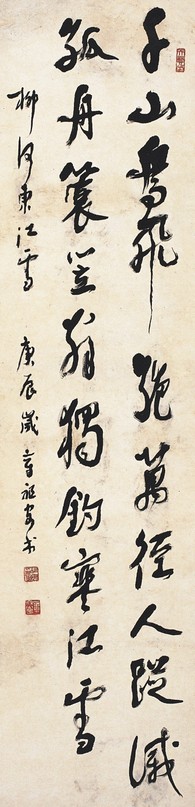 千山鳥飛絕萬徑人蹤滅
孤舟簑笠翁獨釣寒江雪
柳河東江雪 庚辰歲